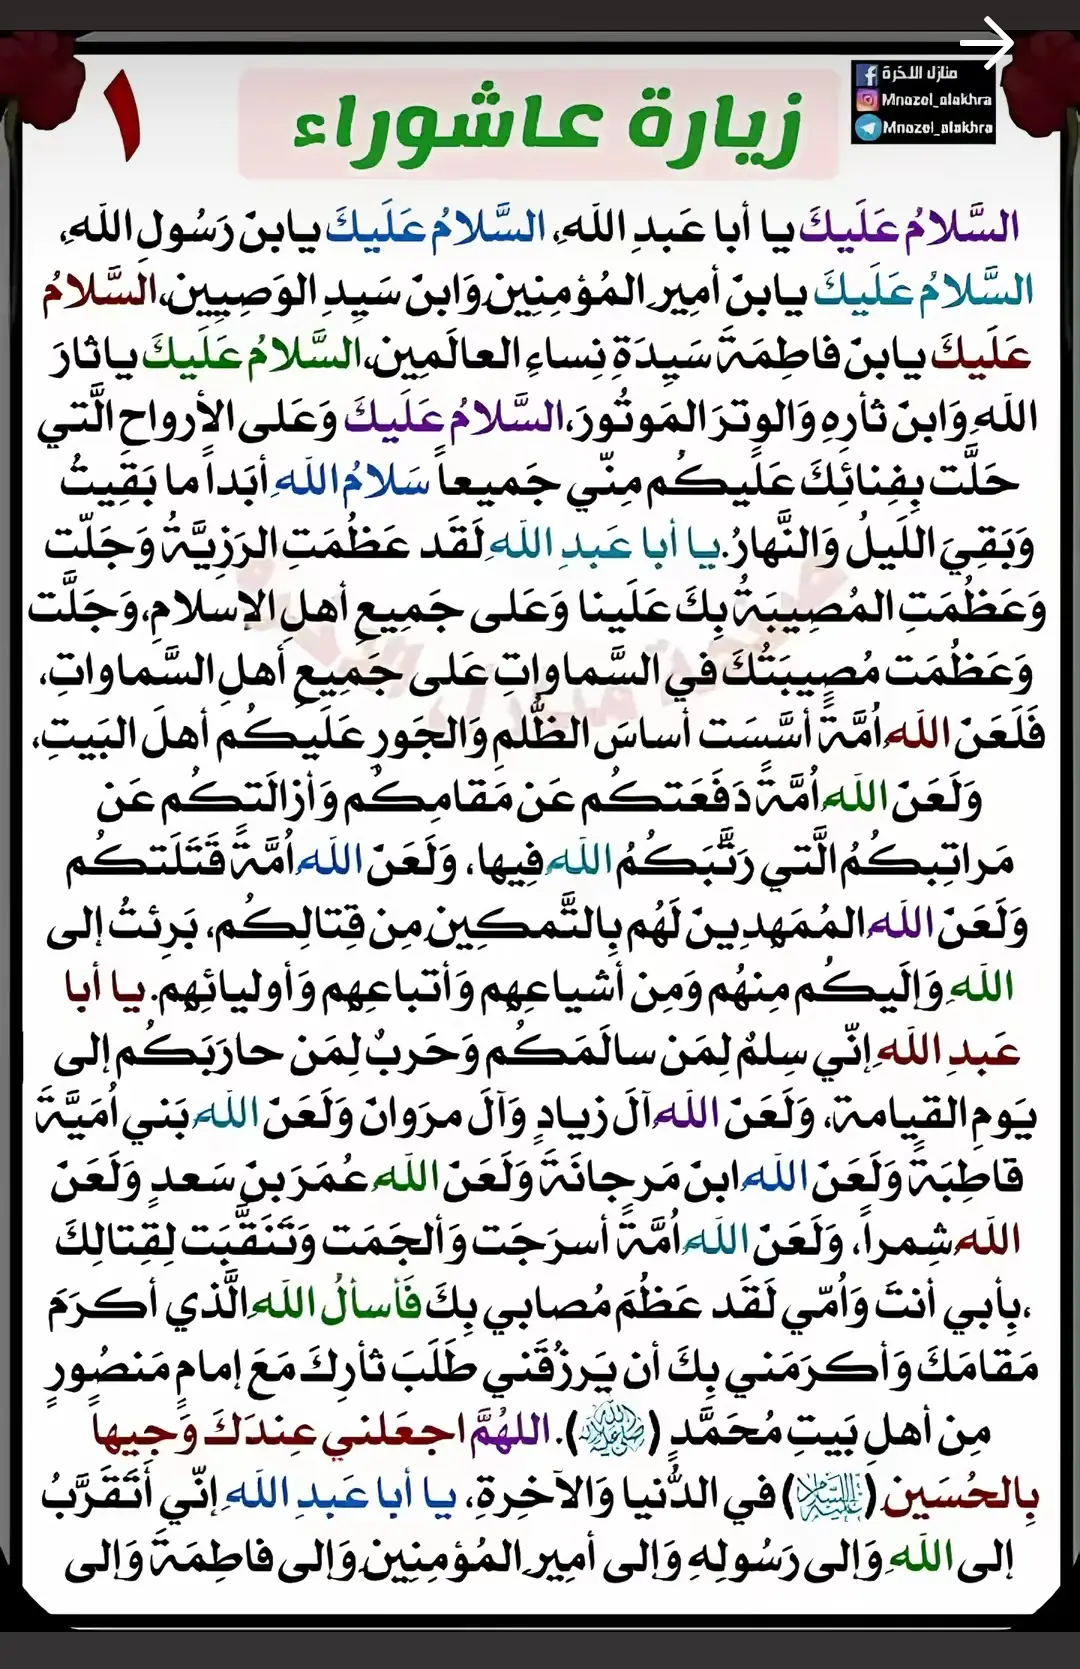 منازل الآخرة
Mnazel_alakhra
Mnazel_alakhra
١
زيارة عاشوراء
السَّلامُ عَلَيكَ يا أبا عَبدِ اللَهِ، السَّلامُ عَلَيكَ يابنَ رَسُولِ اللَهِ،
السَّلامُ عَلَيكَ يابنَ أميرِ المُؤمِنِينَ وَابنَ سَيِدِ الوَصِيِينَ،السَّلامُ
عَلَيكَ يابنَ فاطِمَةَ سَيِدَةِ نِساءِ العالَمِينَ،السَّلامُ عَلَيكَ ياثارَ
اللَهِ وَابنَ ثأرِهِ وَالوِترَ المَوتُورَ،السَّلامُ عَلَيكَ وَعَلى الأرواحِ الَّتي
حَلَّت بِفِنائِكَ عَلَيكُم مِنّي جَميعاً سَلامُ اللَهِ أبَداً ما بَقِيتُ
وَبَقِيَ اللَيلُ وَالنَّهارُ.يا أبا عَبدِ اللَهِ لَقَد عَظُمَتِ الرَزِيَّةُ وَجَلَّت
وَعَظُمَتِ المُصِيبَةُ بِكَ عَلَينا وَعَلى جَميعِ أهلِ الإسلامِ، وَجَلَّت
وَعَظُمَت مُصِيبَتُكَ في السَّماواتِ عَلى جَمِيعِ أهلِ السَّماواتِ،
فَلَعَنَ اللَهُ اُمَّةً أسَّسَت أساسَ الظُّلمِ وَالجَورِ عَلَيكُم أهلَ البَيتِ،
وَلَعَنَ اللَهُ اُمَّةً دَفَعَتكُم عَن مَقامِكُم وَأزالَتكُم عَن
مَراتِبِكُمُ الَّتي رَتَّبَكُمُ اللَهُ فِيها، وَلَعَنَ اللَهُ اُمَّةً قَتَلَتكُم
وَلَعَنَ اللَهُ المُمَهِدِينَ لَهُم بِالتَّمكِينِ مِن قِتالِكُم، بَرِئتُ إلى
اللَهِ وَإلَيكُم مِنهُم وَمِن أشياعِهِم وَأتباعِهِم وَأوليائِهِم. يا أبا
عَبدِ اللَهِ إنّي سِلمٌ لِمَن سالَمَكُم وَحَربٌ لِمَن حارَبَكُم إلى
يَومِ القيامة، وَلَعَنَ اللَهُ آلَ زيادٍ وَآلَ مروَانَ وَلَعَنَ اللَهُ بَني اُمَيَّةَ
قاطِبَةً وَلَعَنَ اللَهُ ابنَ مَرجانَةَ وَلَعَنَ اللَهُ عُمَرَ بنَ سَعدٍ وَلَعَنَ
اللَهُ شِمراً، وَلَعَنَ اللَهُ اُمَّةً أسرَجَت وَألجَمَت وَتَنَقَّبَت لِقِتالِكَ
،بِأبي أنتَ وَاُمّي لَقَد عَظُمَ مُصابي بِكَ فَأسألُ اللَهَ الَّذي أكرَمَ
مَقامَكَ وَأكرَمَني بِكَ أن يَرزُقَني طَلَبَ ثأرِكَ مَعَ إمامٍ مَنصُورٍ
مِن أهلِ بَيتِ مُحَمَّدٍ (ﷺ). اللهُمَّ اجعَلني عِندَكَ وَجِيهاً
بِالحُسَينِ (عليه السلام) في الدُّنيا وَالآخِرةِ، يا أبا عَبدِ اللَهِ إنّي أَتَقَرَّبُ
إلى اللَهِ وَإلى رَسُولِهِ وَإلى أمِيرِ المُؤمِنِينَ وَإلى فاطِمَةَ وَإلى